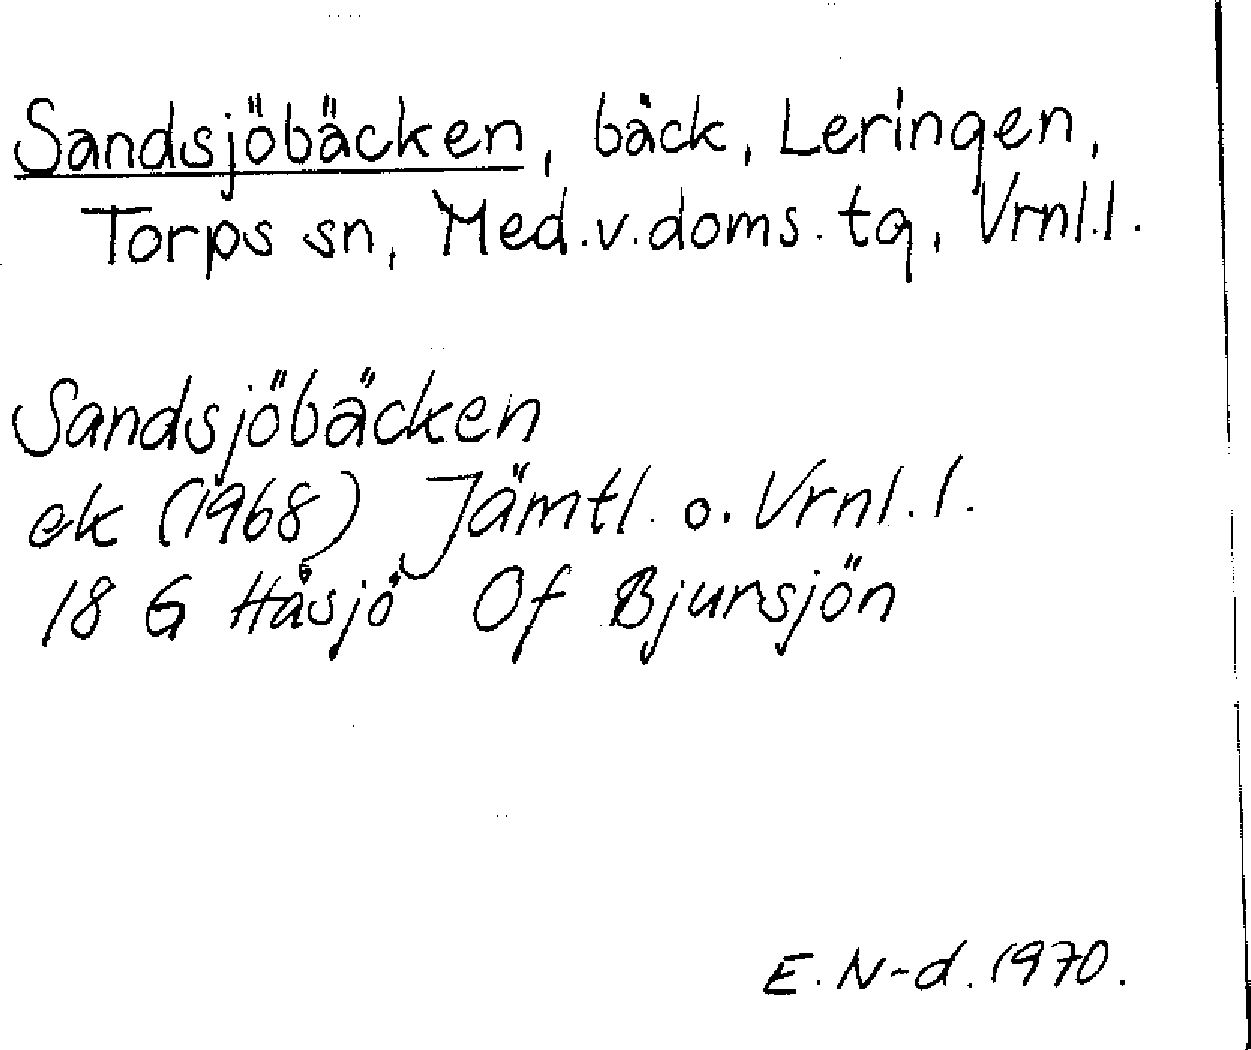 Sandsjöbäcken, bäck, Leringen,
Torps sn, Med.v.doms.tg, Vrnl.l.
Sandsjöbäcken
ek (1968) Jämtl. o. Vrnl.l.
18 G Håsjö Of Bjursjön
E.N-d. 1970.